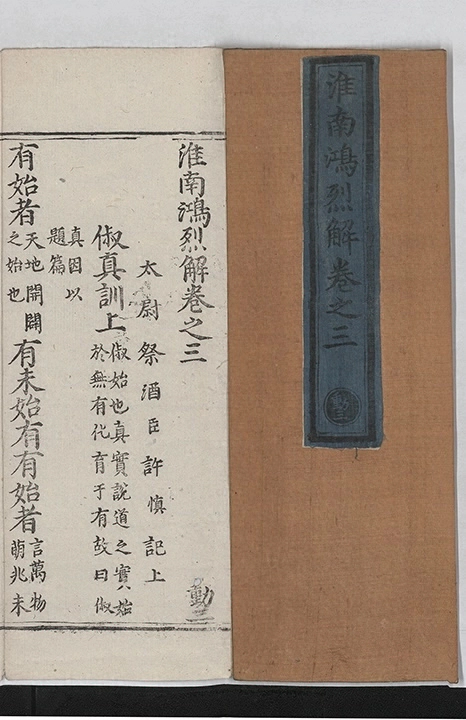 淮南鴻烈解卷之三
動三
淮南鴻烈解卷之三
動三
太尉祭酒臣許慎記上
俶真訓上俶始也真實說道之實始
於無有化育于有故曰俶
真因以
題篇
有始者天地開闢
之始也
有未始有有始者言萬物
萌兆未